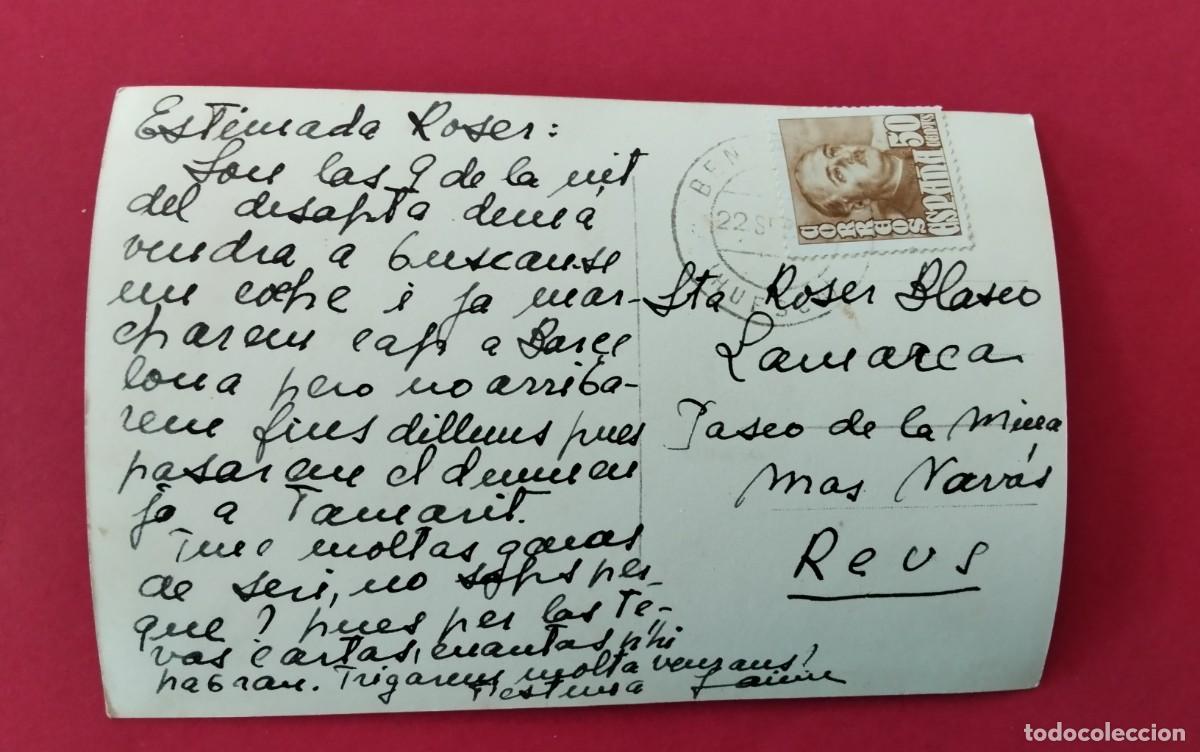 Estimada Roser:
Son las 9 de la nit
del disapta demá
vendra a buscanse
un cotxe i ja mar-
charem cap a Barce
lona pero no arriba-
rem fins dilluns pues
pasarem el diumen
je a Tamarit.
Tinc moltas ganas
de seri, no saps per-
que? pues per las te-
vas cartas, cuantas n'hi
habran. Trigarem molta
T'estima Jaime
BEN
22 SEP
HUESC
CORREOS
ESPAÑA
50
CENTS
Sta Roser Blasco
Lamarca
Paseo de la Mina
Mas Navás
Reus
todocoleccion